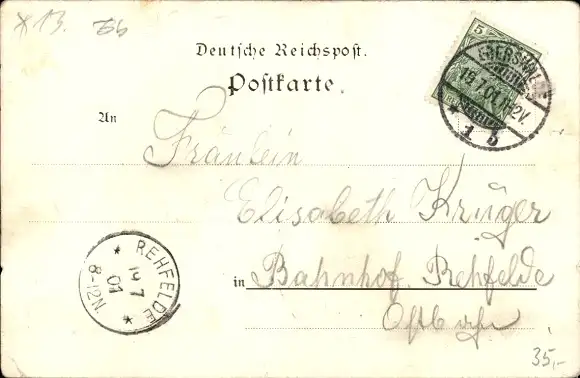 Deutsche Reichspost.
Postkarte.
An
Fräulein
Elisabeth Krüger
in Bahnhof Rehfelde
Ostbahn
5
19.7.01
* 1 b
* REHFELDE *
19 7
01
8-12N
35,-